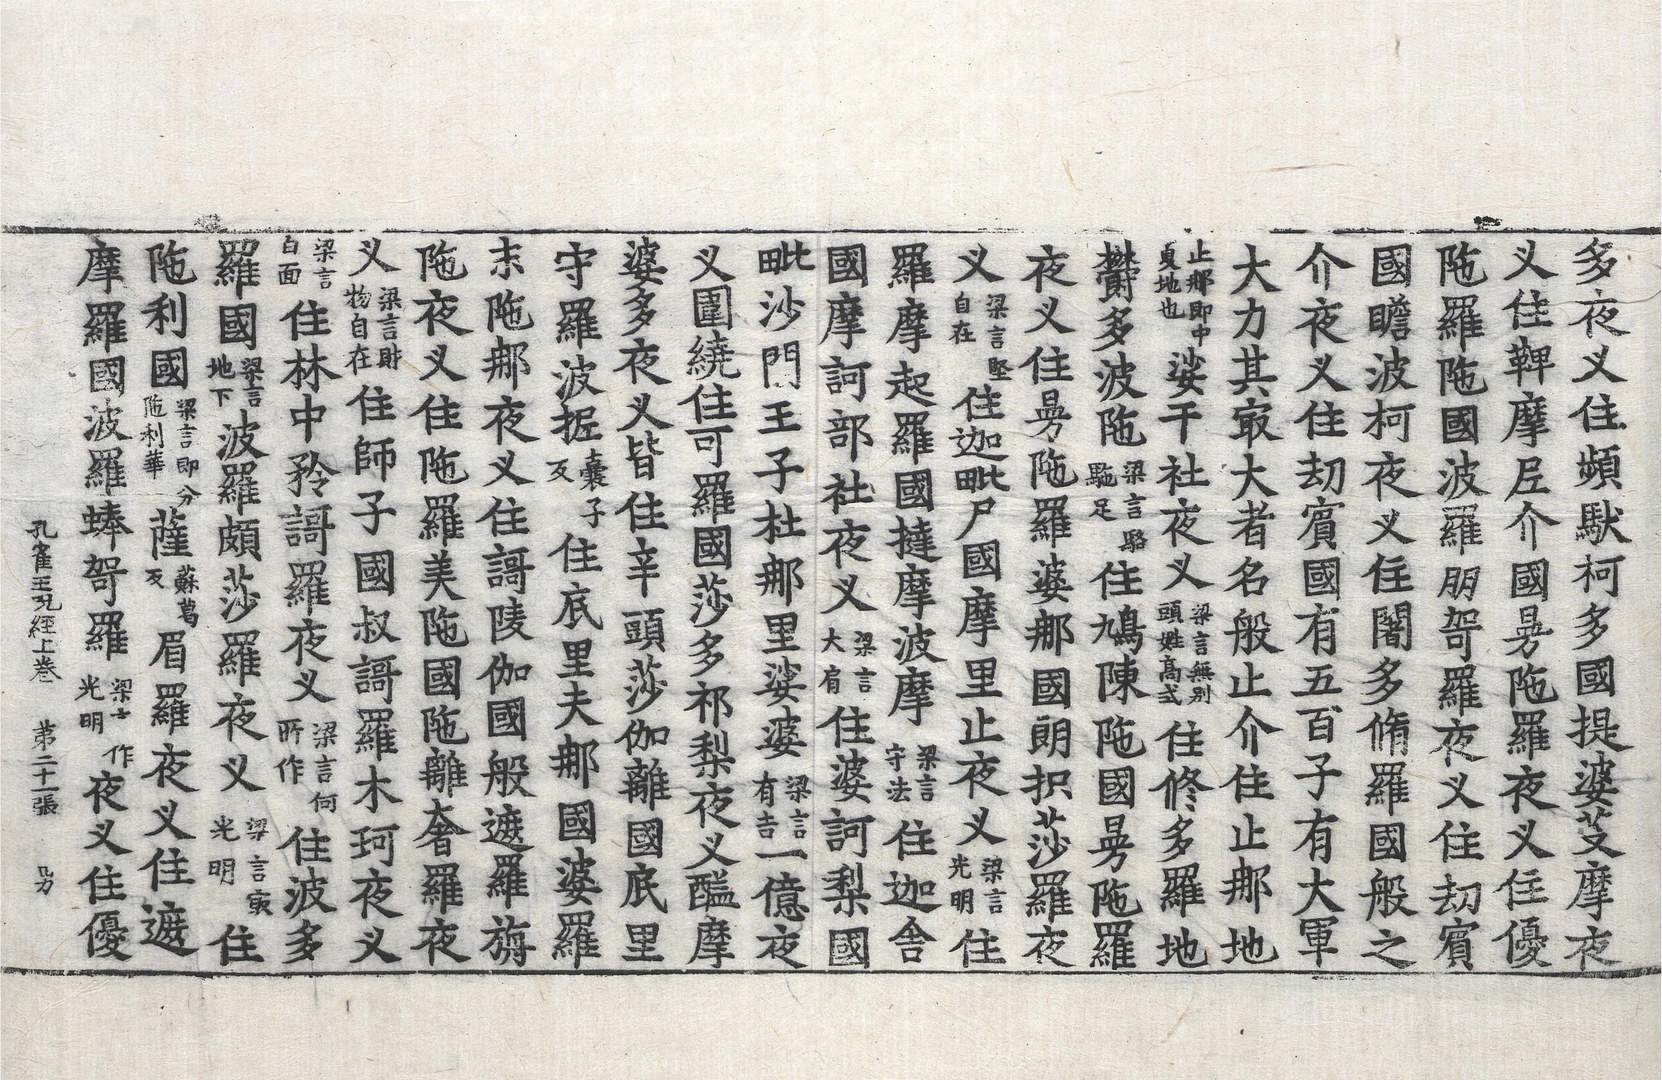 多夜义住頻馱柯多國提婆芟摩夜
义住鞞摩𡰱介國㝵陁羅夜义住優
陁羅陁國波羅朋哿羅夜义住刧賓
國瞻波柯夜义住闍多脩羅國般之
介夜义住刧賓國有五百子有大軍
大力其㝡大者名般止介住止那地
止那即中夏地也娑干社夜义梁言無別頭姓高式住修多羅地
欝多波陁梁言駱駞足住鳩陳陁國㝵陁羅
夜义住㝵陁羅婆那國朗抧莎羅夜
义梁言堅自在住迦毗尸國摩里止夜义梁言光明住
羅摩起羅國撻摩波摩梁言守法住迦舍
國摩訶部社夜义梁言大肩住婆訶梨國
毗沙門王子杜那里娑婆梁言有吉一億夜
义圍繞住可羅國莎多祁梨夜义醯摩
婆多夜义皆住辛頭莎伽離國底里
守羅波握囊子反住底里夫那國婆羅
末陁那夜义住謌陵伽國般遮羅旃
陁夜义住陁羅美陁國陁離奢羅夜
义梁言財物自在住師子國叔謌羅木珂夜义
梁言白面住林中矜謌羅夜义梁言何所作住波多
羅國梁言地下波羅頗莎羅夜义梁言㝡光明住
陁利國梁言即分陁利華薩蘇葛反眉羅夜义住遮
摩羅國波羅蜯哿羅梁言作光明夜义住優
孔雀王呪經上卷 第二十一張 另